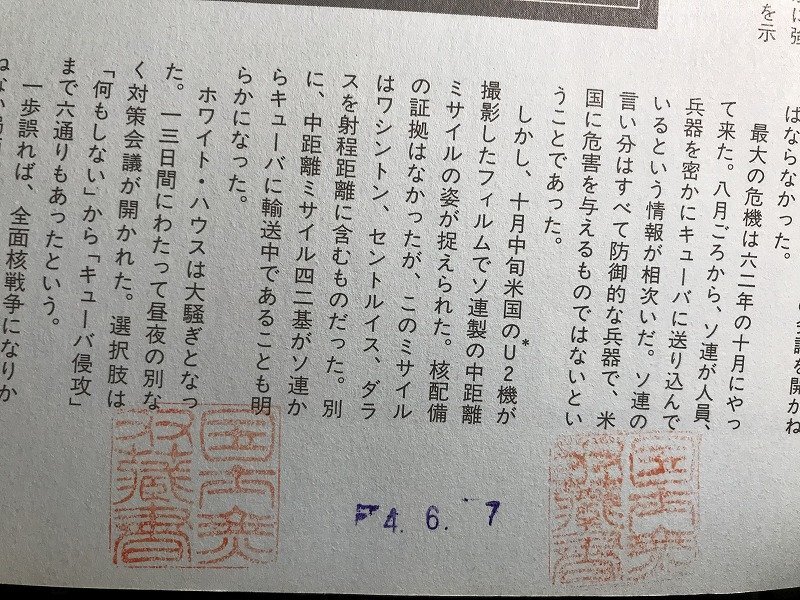 に強
を示
ばならなかった。
最大の危機は六二年の十月にやっ
て来た。八月ごろから、ソ連が人員、
兵器を密かにキューバに送り込んで
いるという情報が相次いだ。ソ連の
言い分はすべて防御的な兵器で、米
国に危害を与えるものではないとい
うことであった。
しかし、十月中旬米国のU2機が*
撮影したフィルムでソ連製の中距離
ミサイルの姿が捉えられた。核配備
の証拠はなかったが、このミサイル
はワシントン、セントルイス、ダラ
スを射程距離に含むものだった。別
に、中距離ミサイル四二基がソ連か
らキューバに輸送中であることも明
らかになった。
ホワイト・ハウスは大騒ぎとなっ
た。一三日間にわたって昼夜の別な
く対策会議が開かれた。選択肢は
「何もしない」から「キューバ侵攻」
まで六通りもあったという。
一歩誤れば、全面核戦争になりか
4. 6. 7